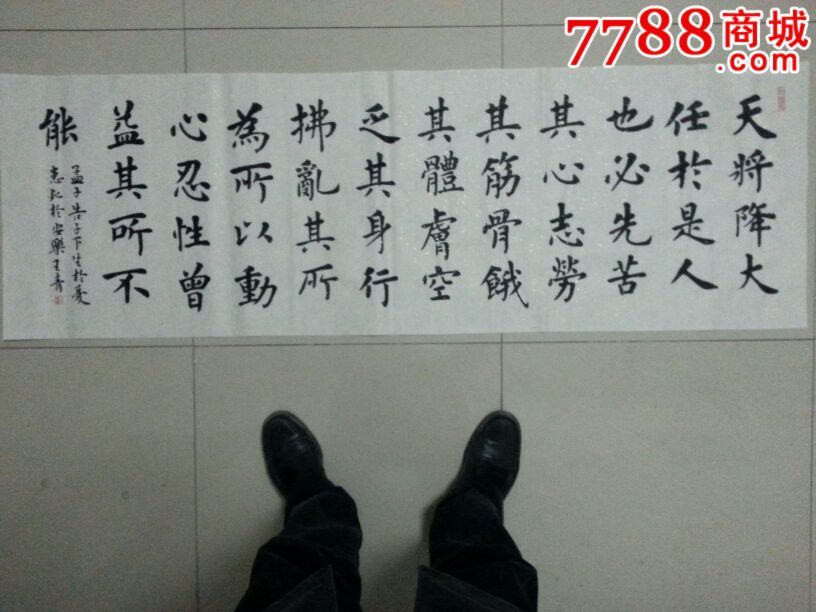 7788商城
.com
天將降大
任於是人
也必先苦
其心志勞
其筋骨餓
其體膚空
乏其身行
拂亂其所
為所以動
心忍性曾
益其所不
能
孟子告子下生於憂
患死於安樂王青